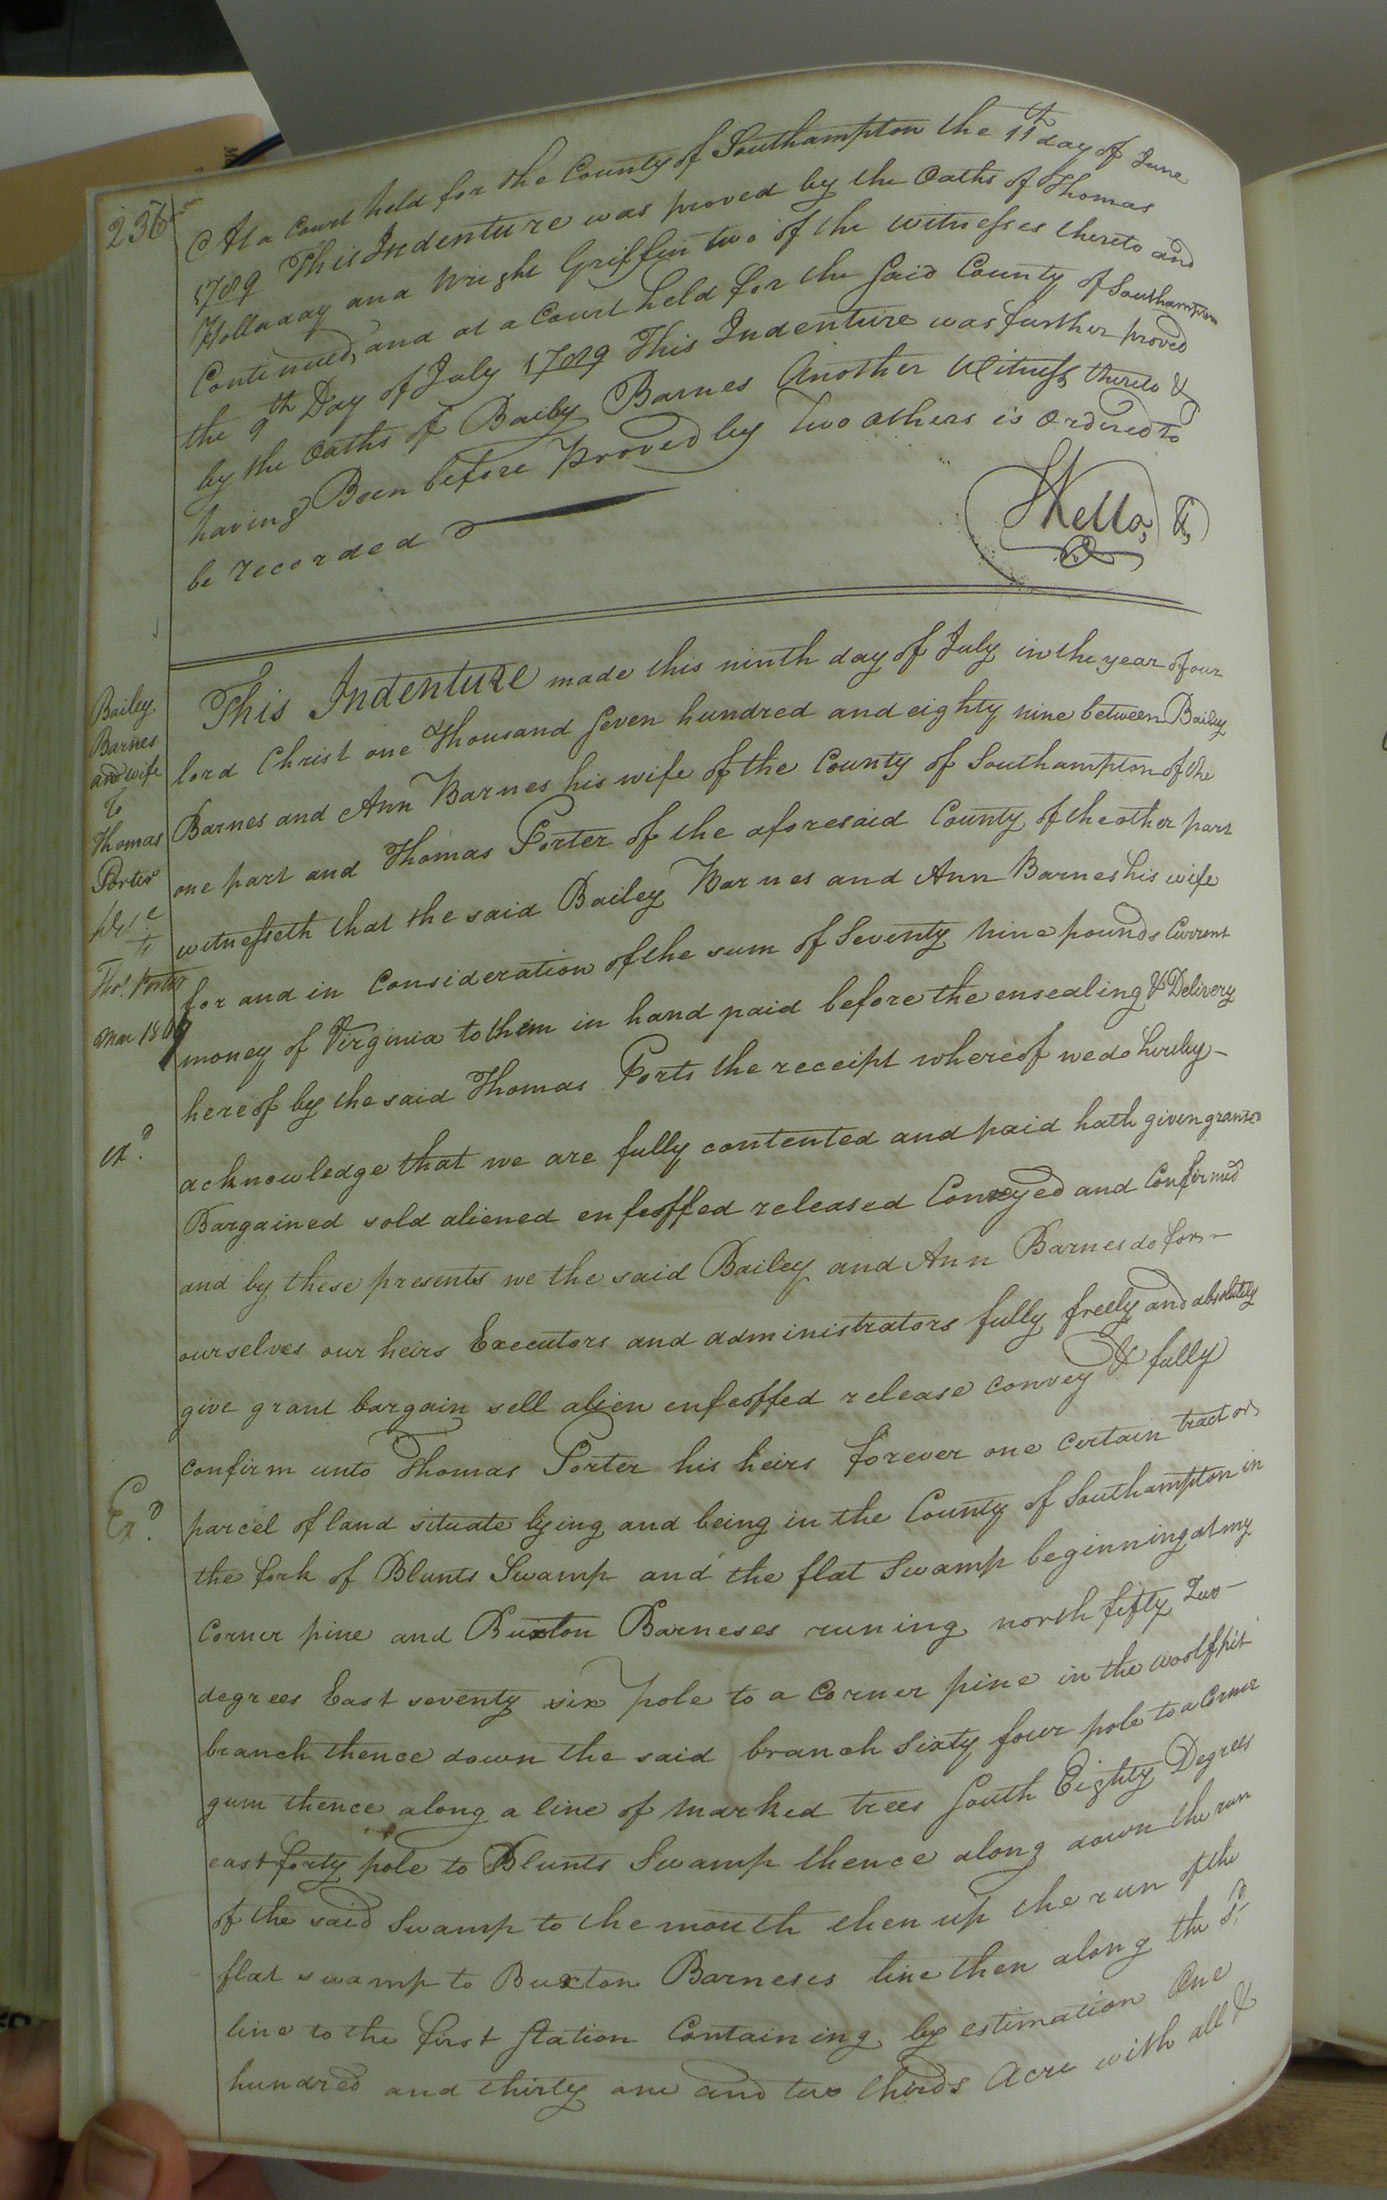 236
At a Court held for the County of Southampton the 11th day of June
1789 This Indenture was proved by the Oaths of Thomas
Holladay and Wright Griffin two of the witnesses thereto and
Continued, and at a Court held for the said County of Southampton
the 9th Day of July 1789 This Indenture was further proved
by the Oaths of Baily Barnes Another Witness thereto &
having Been before Proved by Two others is Ordered to
be recorded
Kello, C,
Bailey
Barnes
and wife
To
Thomas
Porter
to
Tho. Porter
Mar 1807
ex.d
Ex.d
This Indenture made this ninth day of July in the year of our
lord Christ one Thousand Seven hundred and eighty nine between Bailey
Barnes and Ann Barnes his wife of the County of Southampton of the
one part and Thomas Porter of the aforesaid County of the other part
witnesseth that the said Bailey Barnes and Ann Barnes his wife
for and in Consideration of the sum of Seventy Nine pounds Current
money of Virginia to them in hand paid before the ensealing & Delivery
hereof by the said Thomas Ports the receipt whereof we do hereby -
acknowledge that we are fully contented and paid hath given granted
Bargained sold aliened enfeoffed released Conveyed and Confirmed
and by these presents we the said Bailey and Ann Barnes do for -
ourselves our heirs Executors and administrators fully freely and absolutely
give grant bargain sell alien enfeoffed release convey & fully
confirm unto Thomas Porter his heirs forever one certain tract or
parcel of land situate lying and being in the County of Southampton in
the fork of Blunts Swamp and the flat Swamp beginning at my
Corner pine and Buxton Barneses runing north fifty Two -
degrees East seventy six pole to a Corner pine in the woolfpit
branch thence down the said branch Sixty four pole to a Corner
gum thence along a line of marked trees South Eighty Degrees
east forty pole to Blunts Swamp thence along down the run
of the said Swamp to the mouth then up the run of the
flat swamp to Buxton Barneses line then along the s.d
line to the first Station Containing by estimation One
hundred and thirty one and two thirds Acre with all &